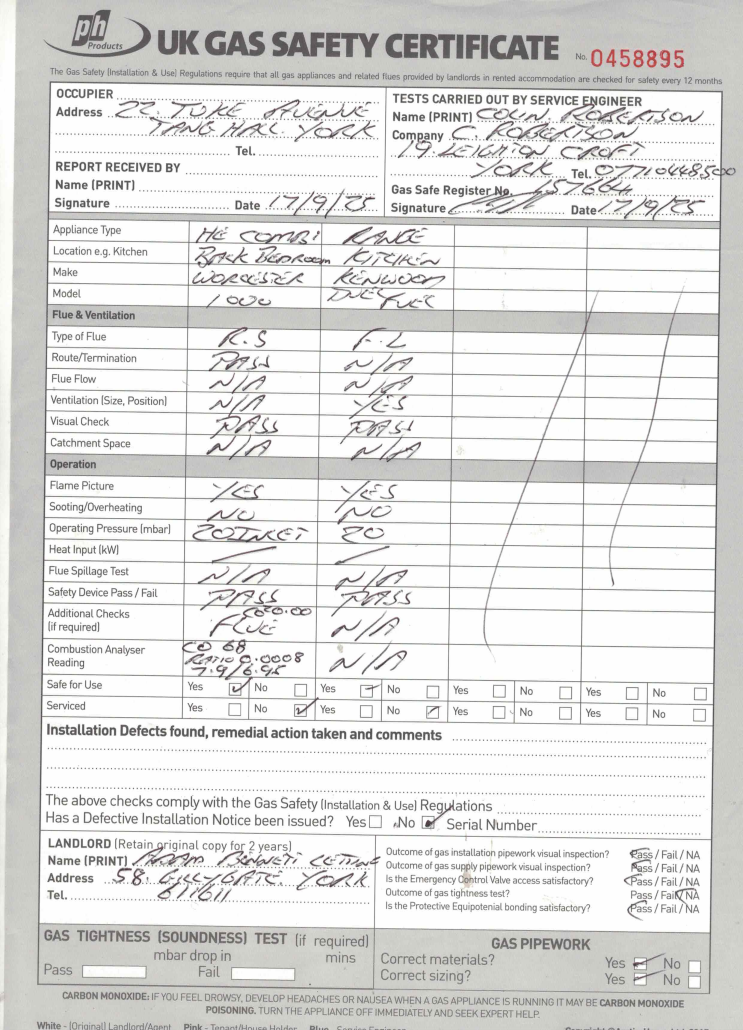 ph Products UK GAS SAFETY CERTIFICATE No. 0458895
The Gas Safety (Installation & Use) Regulations require that all gas appliances and related flues provided by landlords in rented accommodation are checked for safety every 12 months
OCCUPIER
Address 22. TUKE AVENUE
TANG HALL. YORK
Tel.
REPORT RECEIVED BY
Name (PRINT)
Signature Date 17/9/25
TESTS CARRIED OUT BY SERVICE ENGINEER
Name (PRINT) COLIN. ROBERTSON
Company C. ROBERTSON
19. LEIGHTON CROFT
YORK Tel. 07710448500
Gas Safe Register No. 157664
Signature Date 17/9/25
Appliance Type HE COMBI RANGE
Location e.g. Kitchen BACK BEDROOM KITCHEN
Make WORCESTER KENWOOD
Model 1000 DUEL FUEL
Flue & Ventilation
Type of Flue R.S F.L
Route/Termination PASS N/A
Flue Flow N/A N/A
Ventilation (Size, Position) N/A YES
Visual Check PASS PASS
Catchment Space N/A N/A
Operation
Flame Picture YES YES
Sooting/Overheating NO NO
Operating Pressure (mbar) 20 INLET 20
Heat Input (kW)
Flue Spillage Test N/A N/A
Safety Device Pass / Fail PASS PASS
Additional Checks
(if required) FLUE N/A
Combustion Analyser
Reading
CO 68
RATIO 0.0008
7.9/6.95 N/A
Safe for Use Yes No Yes No Yes No Yes No
Serviced Yes No Yes No Yes No Yes No
Installation Defects found, remedial action taken and comments
The above checks comply with the Gas Safety (Installation & Use) Regulations
Has a Defective Installation Notice been issued? Yes No Serial Number
LANDLORD (Retain original copy for 2 years)
Name (PRINT) ADAM BENNETT LETTING
Address 58. GILLYGATE. YORK
Tel. 611611
Outcome of gas installation pipework visual inspection? Pass / Fail / NA
Outcome of gas supply pipework visual inspection? Pass / Fail / NA
Is the Emergency Control Valve access satisfactory? Pass / Fail / NA
Outcome of gas tightness test? Pass / Fail / NA
Is the Protective Equipotenial bonding satisfactory? Pass / Fail / NA
GAS TIGHTNESS (SOUNDNESS) TEST (if required)
mbar drop in mins
Pass Fail
GAS PIPEWORK
Correct materials? Yes No
Correct sizing? Yes No
CARBON MONOXIDE: IF YOU FEEL DROWSY, DEVELOP HEADACHES OR NAUSEA WHEN A GAS APPLIANCE IS RUNNING IT MAY BE CARBON MONOXIDE
POISONING. TURN THE APPLIANCE OFF IMMEDIATELY AND SEEK EXPERT HELP.
White - (Original) Landlord/Agent Pink - Tenant/House Holder Blue - Service Engineer